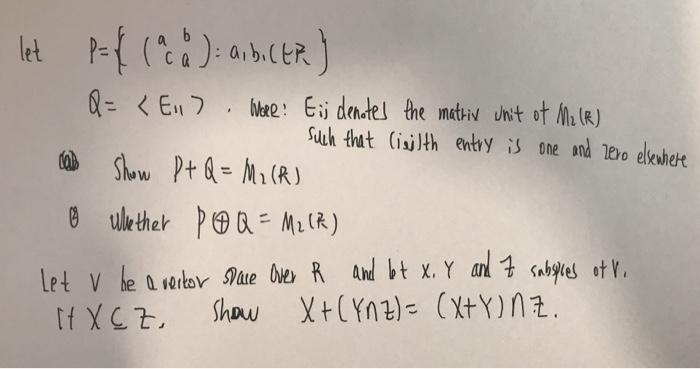 let P = { ( a b c a ) : a,b,c ∈ R }
Q = < E11 > . Note: Eij denotes the matrix unit of M2(R)
such that (i,j)th entry is one and zero elsewhere
Show P+Q = M2(R)
② whether P ⊕ Q = M2(R)
Let V be a vector space over R and let X, Y and Z subspces of V.
If X ⊆ Z, show X+(Y∩Z) = (X+Y)∩Z.